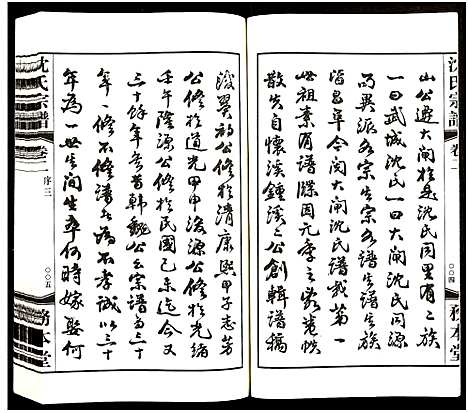 沈氏宗譜
卷二
〇〇四
務本堂
山公遊大閘於是沈氏同里有二族
一曰武城沈氏一曰大閘沈氏同源
而異派各宗其宗各譜其譜其族
皆昌阜今閱大閘沈氏譜載第一
世祖素有譜牒因元季之亂卷帙
散失自懷溪鍾溪二公創輯譜稿
後翼初公修於清康熙甲子志芳
公修於道光甲申浚源公修於光緒
壬午隆源公修於民國己未迄今又
三十餘年矣昔韓魏公之宗譜曰三十
年一修不修譜者為不孝誠以三十
年為一世其間生卒何時嫁娶何
沈氏宗譜
卷二
序三
〇〇五
務本堂